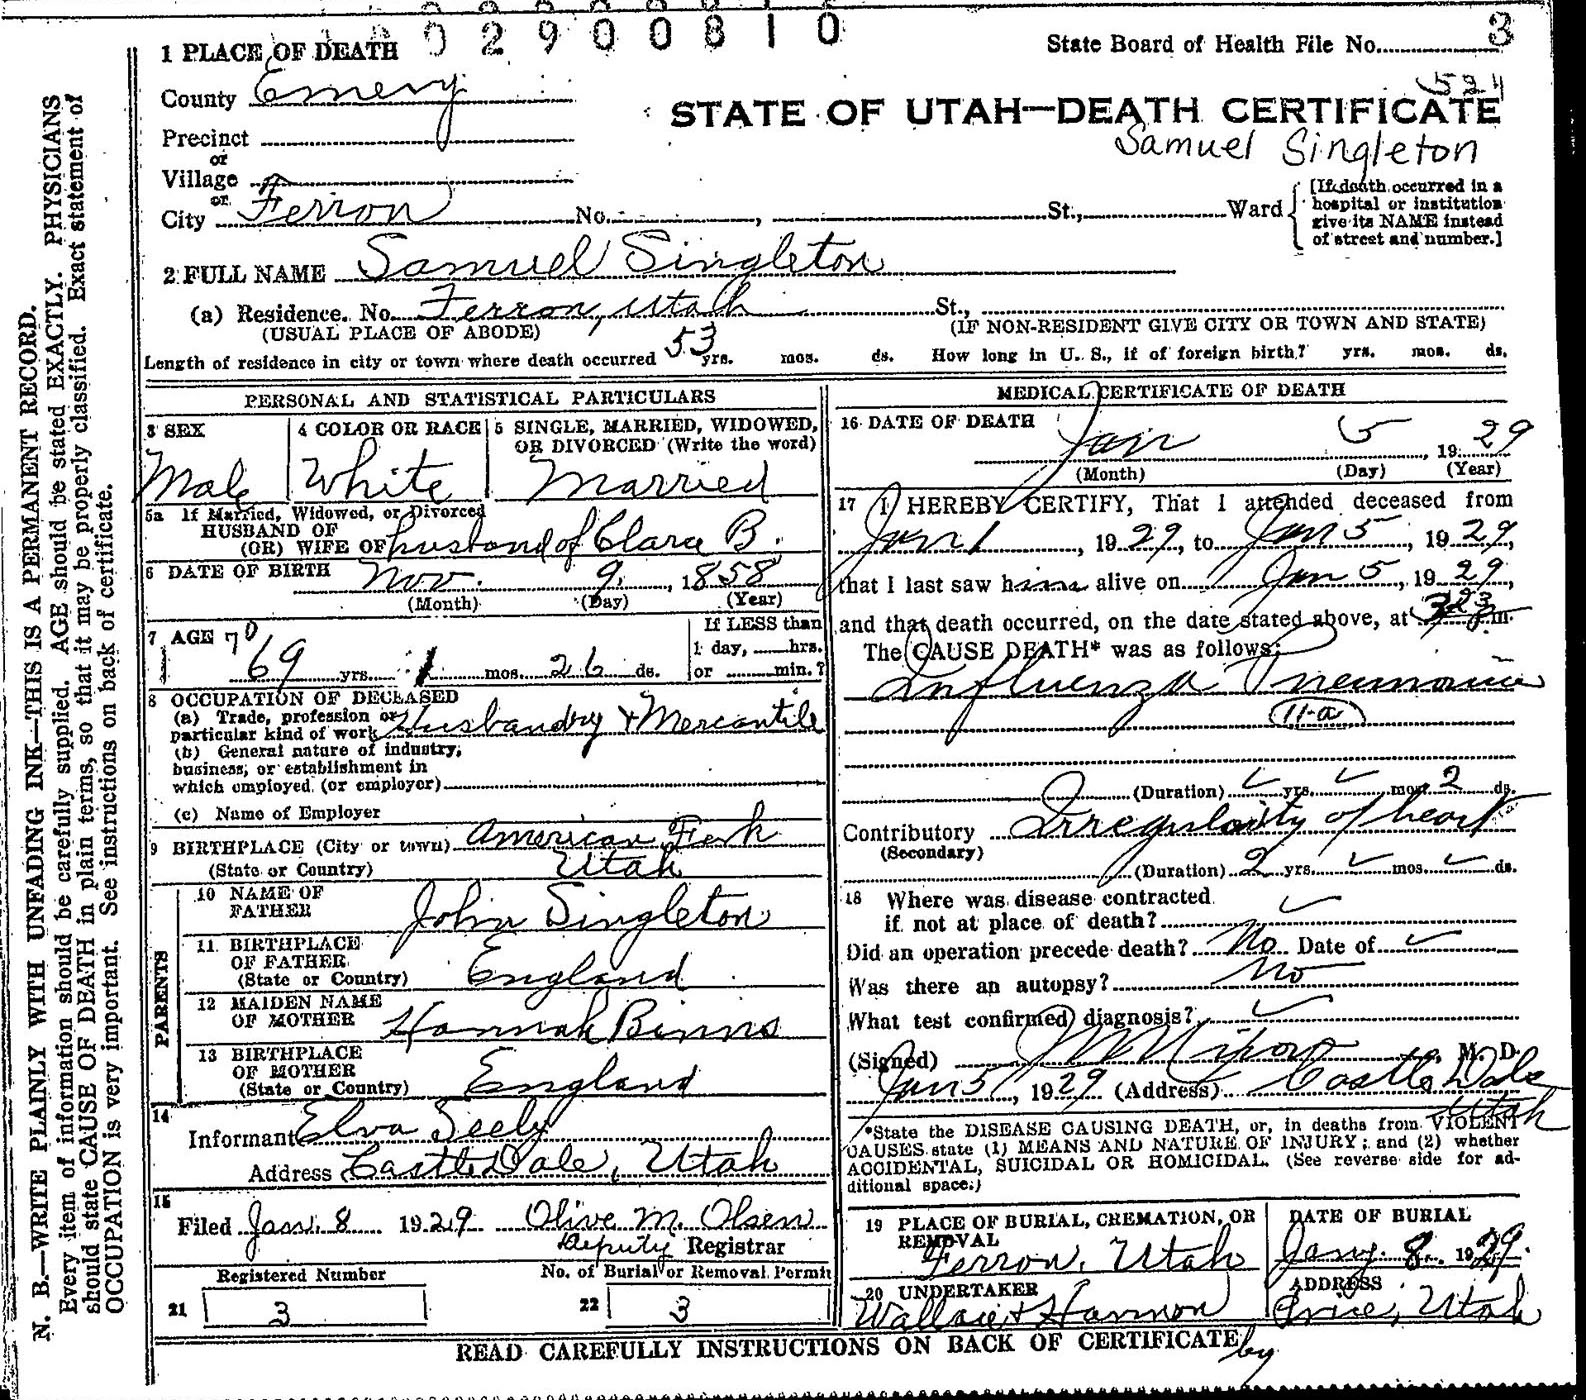 0 2 9 0 0 8 1 0
1 PLACE OF DEATH
State Board of Health File No. 3
County Emery
524
STATE OF UTAH—DEATH CERTIFICATE
Precinct
Samuel Singleton
or
Village
or
City Ferron No. , St., Ward
[If death occurred in a
hospital or institution
give its NAME instead
of street and number.]
2 FULL NAME Samuel Singleton
(a) Residence. No. Ferron, Utah St.,
(USUAL PLACE OF ABODE) (IF NON-RESIDENT GIVE CITY OR TOWN AND STATE)
Length of residence in city or town where death occurred 53 yrs. mos. ds. How long in U. S., if of foreign birth? yrs. mos. ds.
PERSONAL AND STATISTICAL PARTICULARS
3 SEX
Male
4 COLOR OR RACE
White
5 SINGLE, MARRIED, WIDOWED,
OR DIVORCED (Write the word)
Married
5a If Married, Widowed, or Divorced
HUSBAND OF
(OR) WIFE OF husband of Clara B.
6 DATE OF BIRTH Nov. 9, 1858
(Month) (Day) (Year)
7 AGE 70
69 yrs. 1 mos. 26 ds.
If LESS than
1 day, hrs.
or min.?
8 OCCUPATION OF DECEASED
(a) Trade, profession or
particular kind of work Husbandry & Mercantile
(b) General nature of industry,
business, or establishment in
which employed (or employer)
(c) Name of Employer
9 BIRTHPLACE (City or town) American Fork
(State or Country) Utah
PARENTS
10 NAME OF
FATHER John Singleton
11 BIRTHPLACE
OF FATHER
(State or Country) England
12 MAIDEN NAME
OF MOTHER Hannah Binns
13 BIRTHPLACE
OF MOTHER
(State or Country) England
14
Informant Elva Seely
Address Castle Dale, Utah
15
Filed Jan. 8 1929 Olive M. Olsen
Deputy Registrar
Registered Number
21 3
No. of Burial or Removal Permit
22 3
MEDICAL CERTIFICATE OF DEATH
16 DATE OF DEATH
Jan 5, 1929
(Month) (Day) (Year)
17 I HEREBY CERTIFY, That I attended deceased from
Jan 1, 1929, to Jan 5, 1929,
that I last saw him alive on Jan 5, 1929,
and that death occurred, on the date stated above, at m.
The CAUSE DEATH* was as follows:
Influenza Pneumonia
11-a
(Duration) yrs. mos. 2 ds.
Contributory Irregularity of heart
(Secondary)
(Duration) 2 yrs. mos. ds.
18 Where was disease contracted
if not at place of death?
Did an operation precede death? No Date of
Was there an autopsy? No
What test confirmed diagnosis?
(Signed) M. D.
Jan 5, 1929 (Address) Castle Dale
Utah
*State the DISEASE CAUSING DEATH, or, in deaths from VIOLENT
CAUSES state (1) MEANS AND NATURE OF INJURY; and (2) whether
ACCIDENTAL, SUICIDAL OR HOMICIDAL. (See reverse side for ad-
ditional space.)
19 PLACE OF BURIAL, CREMATION, OR
REMOVAL
Ferron, Utah
DATE OF BURIAL
Jany. 8. 1929.
20 UNDERTAKER
Wallace & Harmon
ADDRESS
Price, Utah
READ CAREFULLY INSTRUCTIONS ON BACK OF CERTIFICATE
by
N. B.—WRITE PLAINLY WITH UNFADING INK—THIS IS A PERMANENT RECORD.
Every item of information should be carefully supplied. AGE should be stated EXACTLY. PHYSICIANS
should state CAUSE OF DEATH in plain terms, so that it may be properly classified. Exact statement of
OCCUPATION is very important. See instructions on back of certificate.